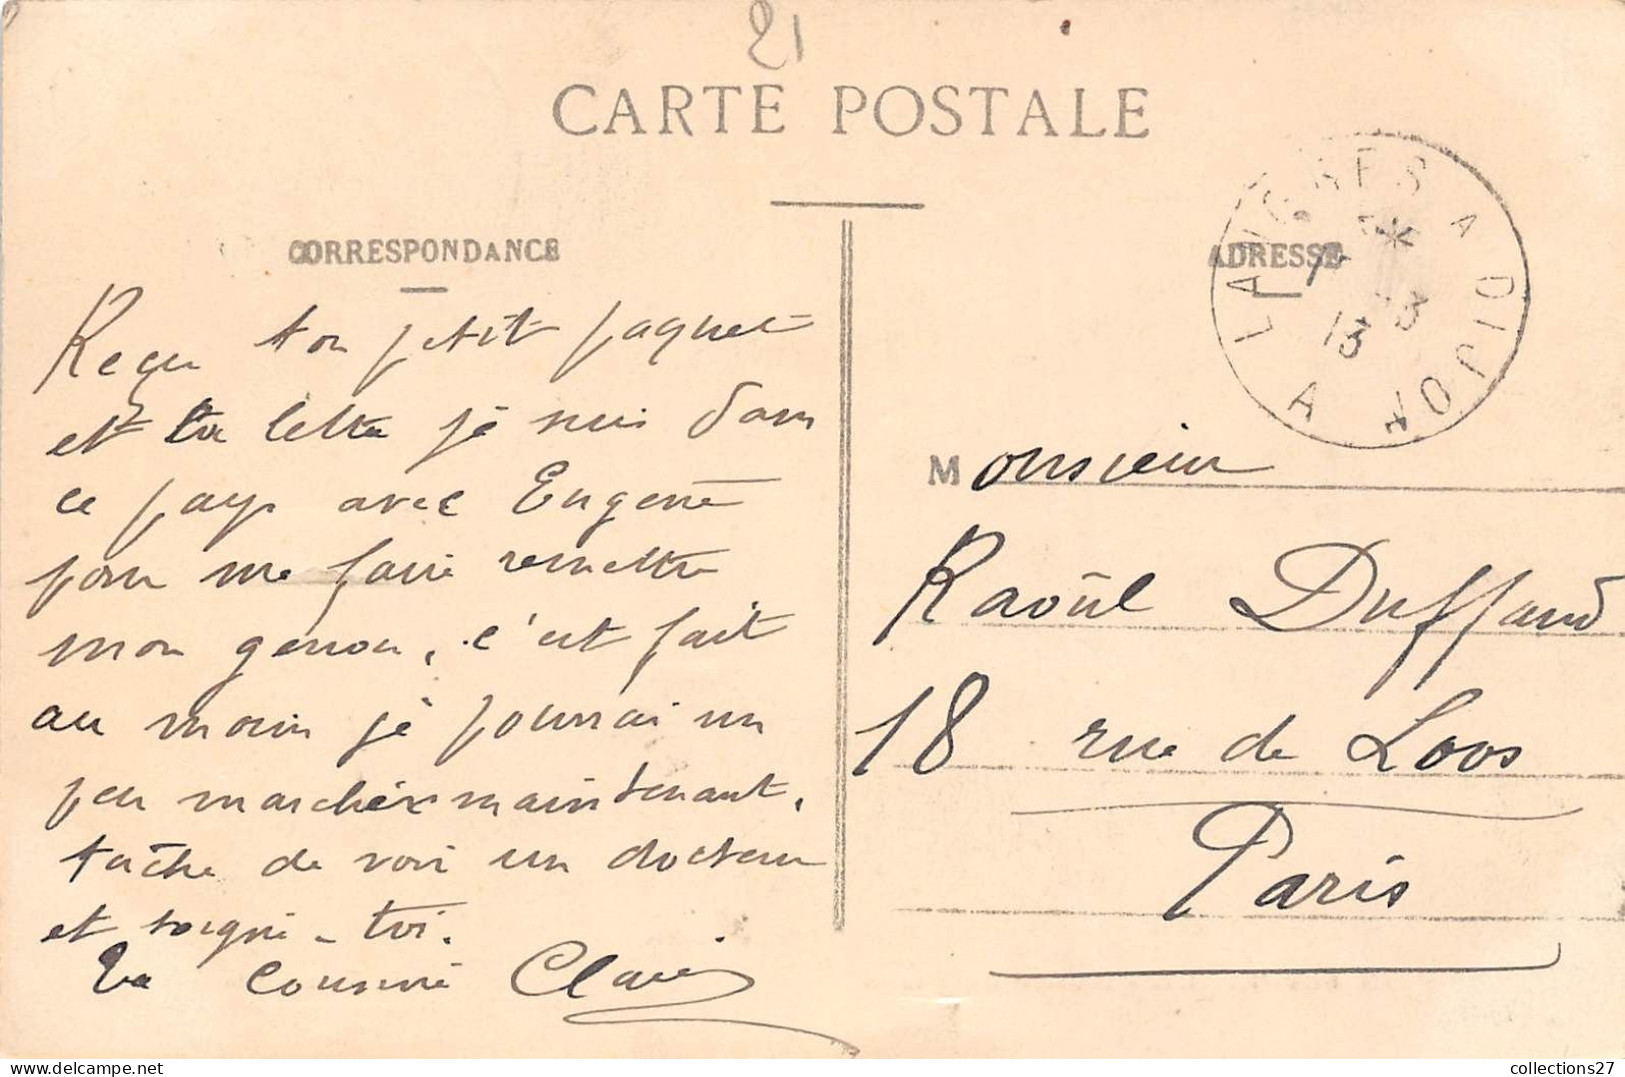 21
CARTE POSTALE
CORRESPONDANCE
ADRESSE
LANGRES A DIJON
A
13
Reçu ton petit paquet
et ta lettre je suis dans
ce pays avec Eugène
pour me faire remettre
mon genou, c'est fait
au moin je pourrai un
peu marcher maintenant,
tâche de voir un docteur
et soigne-toi.
Ta cousine Claire
Monsieur
Raoûl Duffaud
18 rue de Loos
Paris
collections27